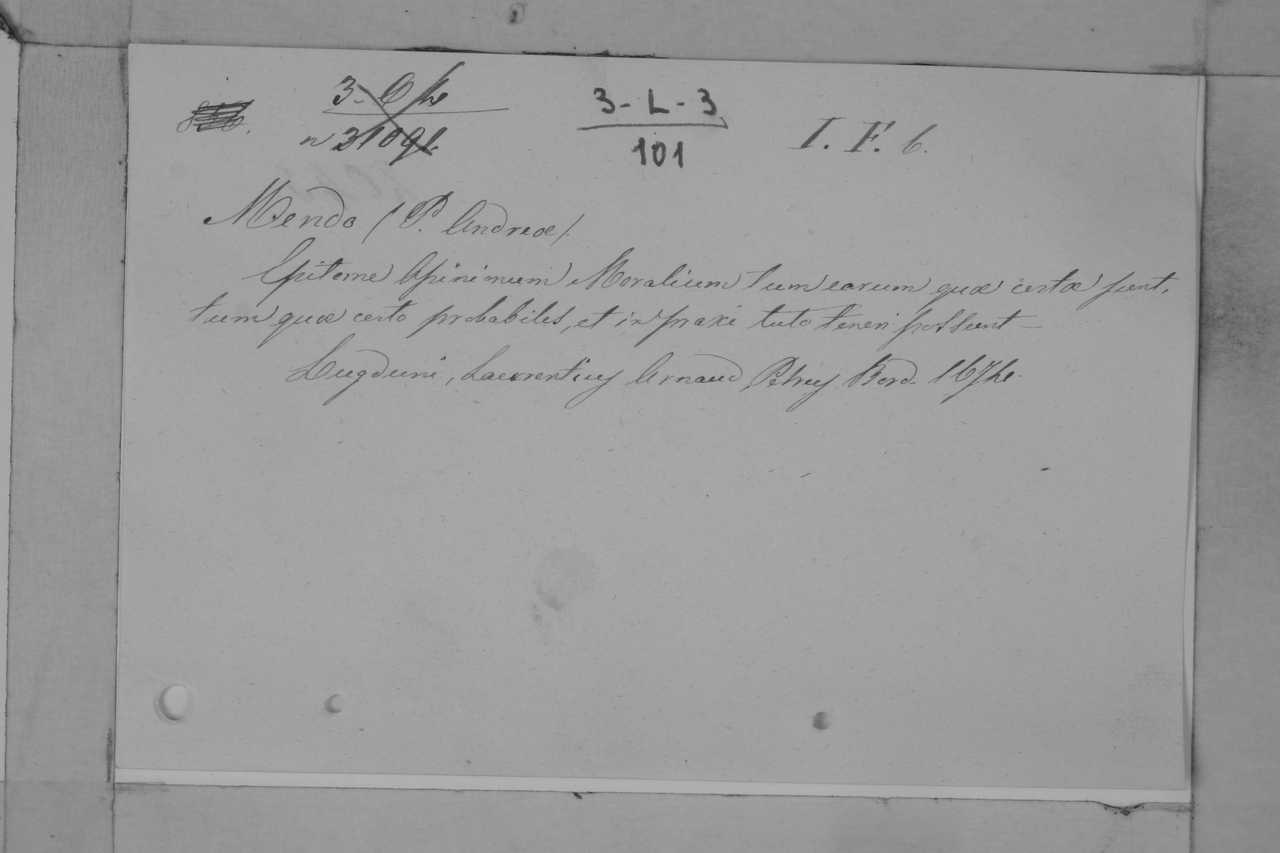 3-L-3
101
I. F. 6.
Mendo (P. Andreæ)
Epitome Opinionum Moralium tum earum quæ certæ sunt,
tum quæ certo probabiles, et in praxi tuto teneri possunt-
Lugduni, Laurentius Arnaud Petrus Bord. 1674.